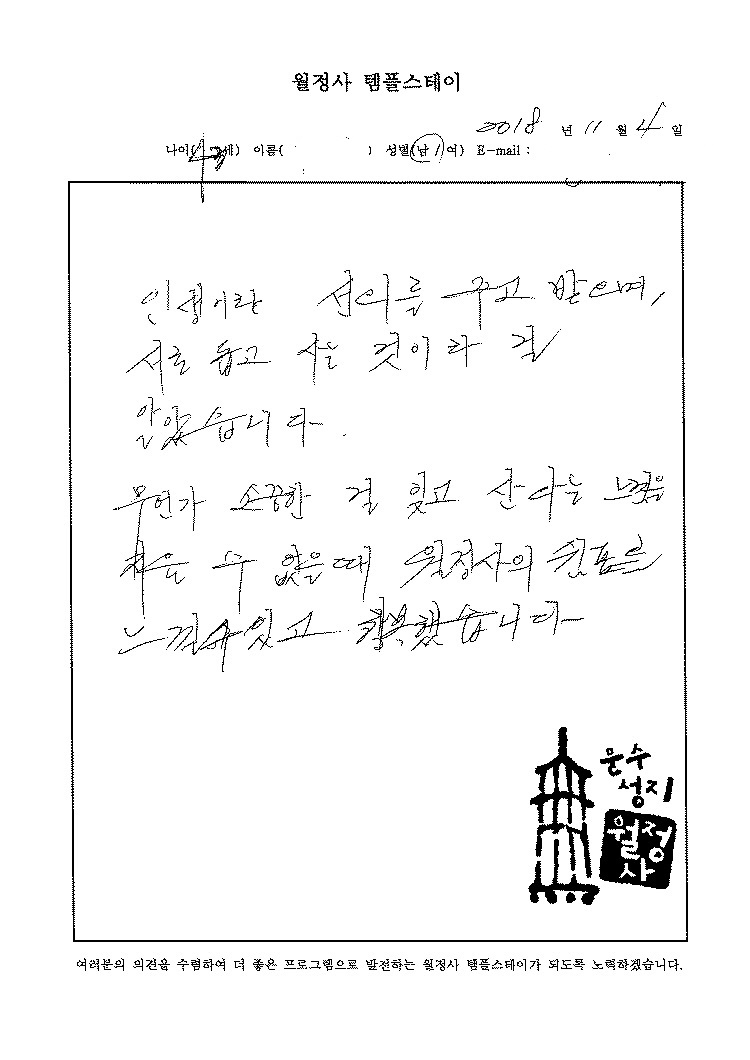 월정사 템플스테이
2018 년 11 월 4 일
나이( 세) 이름( ) 성별(남/여) E-mail :
인생이란 선의를 주고 받으며,
서로 돕고 사는 것이라 걸
알았습니다.
무언가 소중한 걸 잊고 산다는 느낌을
지울 수 없을때 월정사의 쉼표를
느낄수있고 행복했습니다
문수
성지
월정
사
여러분의 의견을 수렴하여 더 좋은 프로그램으로 발전하는 월정사 템플스테이가 되도록 노력하겠습니다.